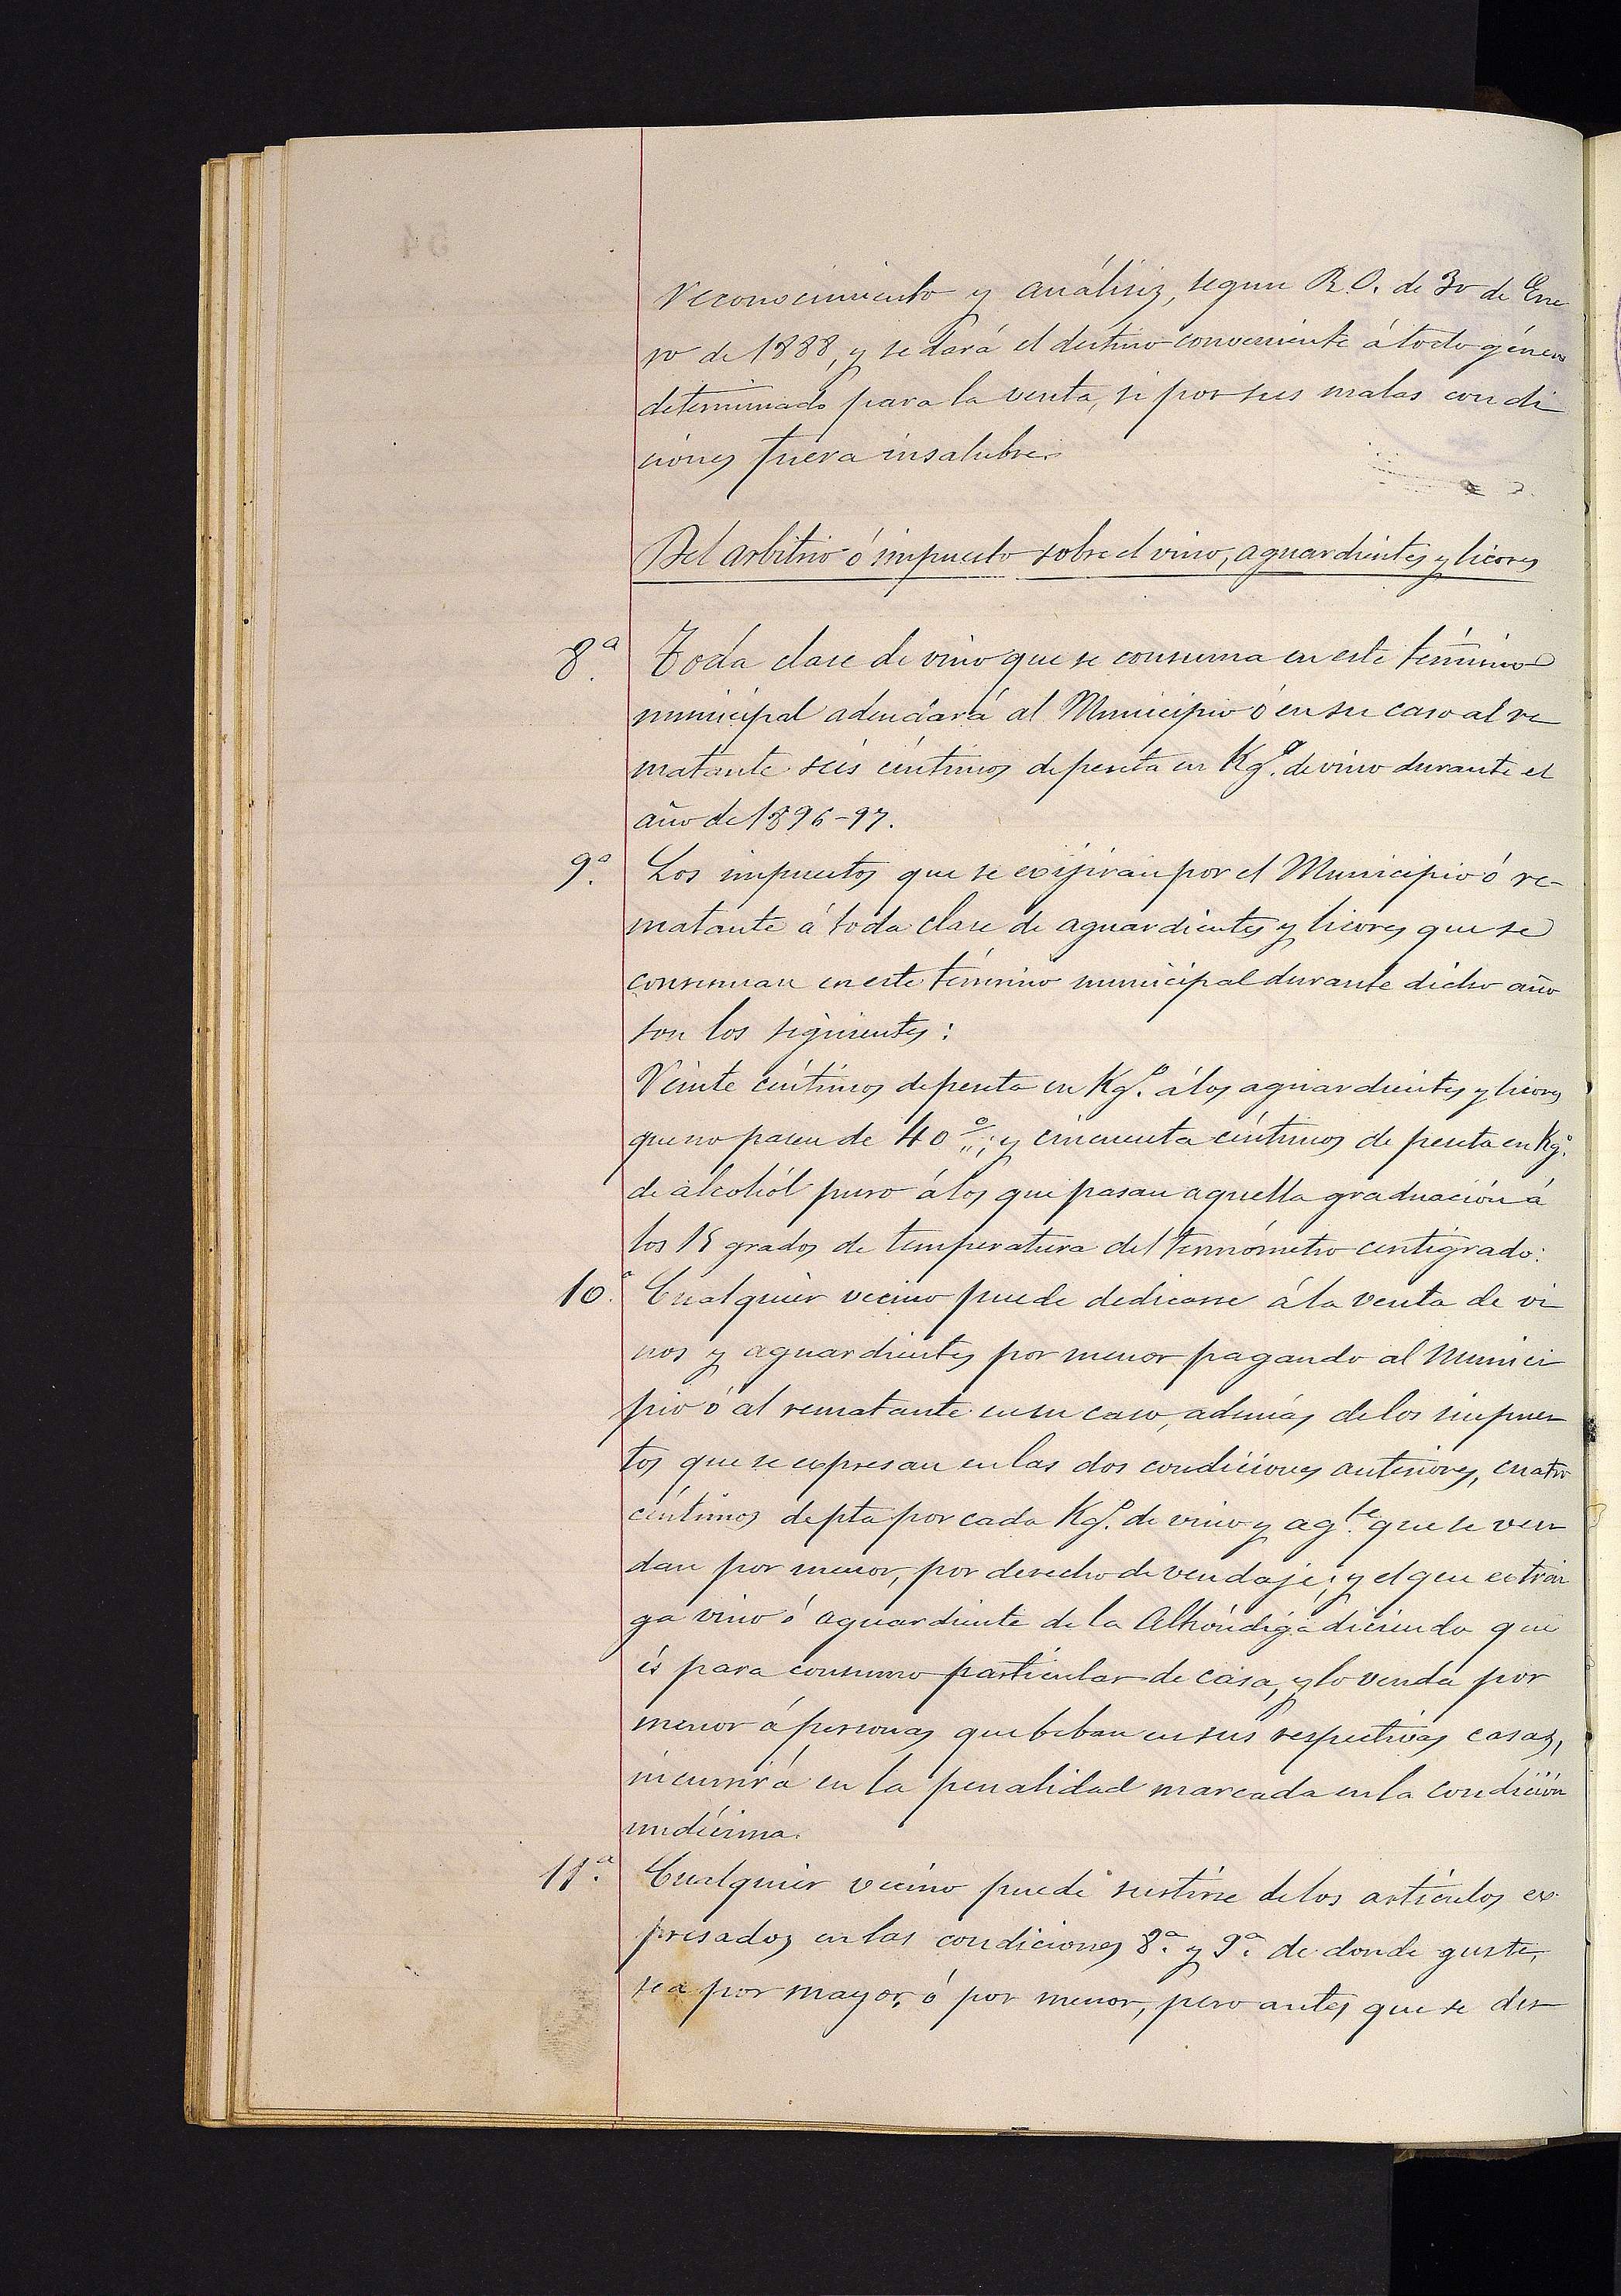 reconocimiento y análisis, segun R.O. de 30 de Ene
ro de 1888, y se dará el destino conveniente á todo género
determinado para la venta, si por sus malas condi
ciones fuera insalubre.
Del arbitrio ó impuesto sobre el vino, aguardientes y licores
8.ª Toda clase de vino que se consuma en este término
municipal adeudará al Municipio ó en su caso al re
matante seis céntimos de peseta en Kg.º de vino durante el
año de 1896-97.
9.ª Los impuestos que se exijiran por el Municipio ó re-
matante á toda clase de aguardientes y licores que se
consuman en este término municipal durante dicho año
son los siguientes:
Veinte céntimos de peseta en Kg.º á los aguardientes y licores
que no pasen de 40 %; y cincuenta céntimos de peseta en Kg.º
de alcohól puro á los que pasan aquella graduación á
los 15 grados de temperatura del termómetro centigrado.
10.ª Cualquier vecino puede dedicarse á la venta de vi
nos y aguardientes por menor pagando al Munici
pio ó al rematante en su caso, además de los impues
tos que se expresan en las dos condiciones anteriores, cuatro
céntimos de pta por cada Kg.º de vino y ag.te que se ven
dan por menor, por derecho de vendaje; y el que extrai
ga vino ó aguardiente de la Alhóndiga diciendo que
és para consumo particular de casa, y lo venda por
menor á personas que beban en sus respectivas casas,
incurrirá en la penalidad marcada en la condición
undécima.
11.ª Cualquier vecino puede surtirse de los artículos ex
presados en las condiciones 8.ª y 9.ª de donde guste,
sea por mayor, ó por menor, pero antes que se des